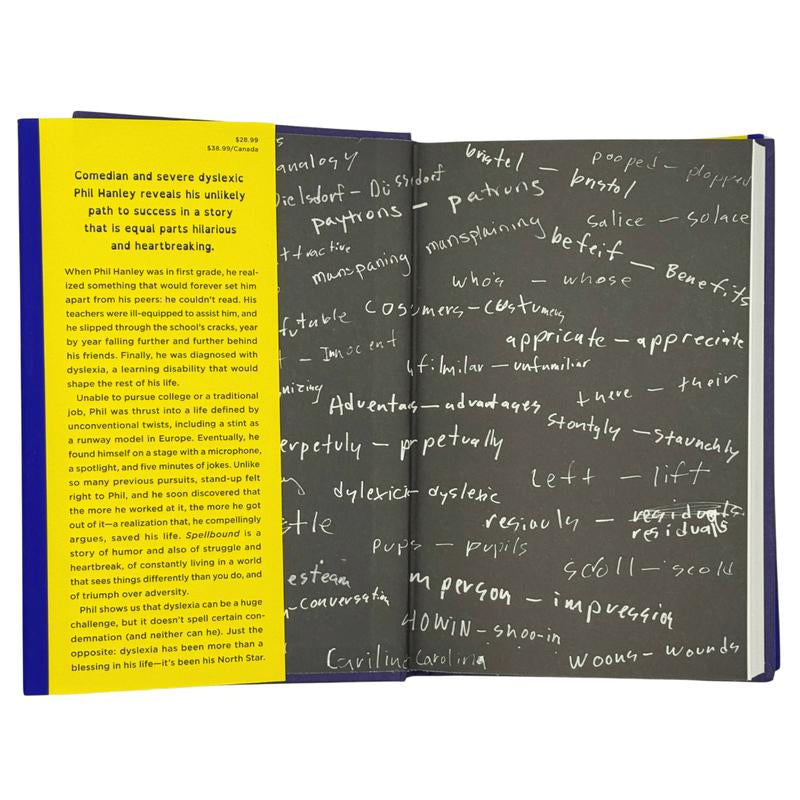 $28.99
$38.99/Canada
Comedian and severe dyslexic
Phil Hanley reveals his unlikely
path to success in a story
that is equal parts hilarious
and heartbreaking.
When Phil Hanley was in first grade, he real-
ized something that would forever set him
apart from his peers: he couldn't read. His
teachers were ill-equipped to assist him, and
he slipped through the school's cracks, year
by year falling further and further behind
his friends. Finally, he was diagnosed with
dyslexia, a learning disability that would
shape the rest of his life.
Unable to pursue college or a traditional
job, Phil was thrust into a life defined by
unconventional twists, including a stint as
a runway model in Europe. Eventually, he
found himself on a stage with a microphone,
a spotlight, and five minutes of jokes. Unlike
so many previous pursuits, stand-up felt
right to Phil, and he soon discovered that
the more he worked at it, the more he got
out of it—a realization that, he compellingly
argues, saved his life. Spellbound is a
story of humor and also of struggle and
heartbreak, of constantly living in a world
that sees things differently than you do, and
of triumph over adversity.
Phil shows us that dyslexia can be a huge
challenge, but it doesn't spell certain con-
demnation (and neither can he). Just the
opposite: dyslexia has been more than a
blessing in his life—it's been his North Star.
analogy
Dielsdorf – Düsseldorf
paytrons – patrons
ttractive
manspaning mansplaining
Cosumers – costumers
futable
– Innocent
nizing
Adventags – advantages
erpetuly – perpetually
dylexict dyslexic
stle
pups – pupils
esteam
– conversation
Cariline Carolina
bristel – bristol
pooped – plopped
salice – solace
befeif – Benefits
who's – whose
appricate – appreciate
ufilmilar – unfumiliar
there – their
stontgly – staunchly
Left – lift
resiauls – residuals
residuals
scoll – scold
m person – impression
HOWIN – shoo-in
woons – wounds